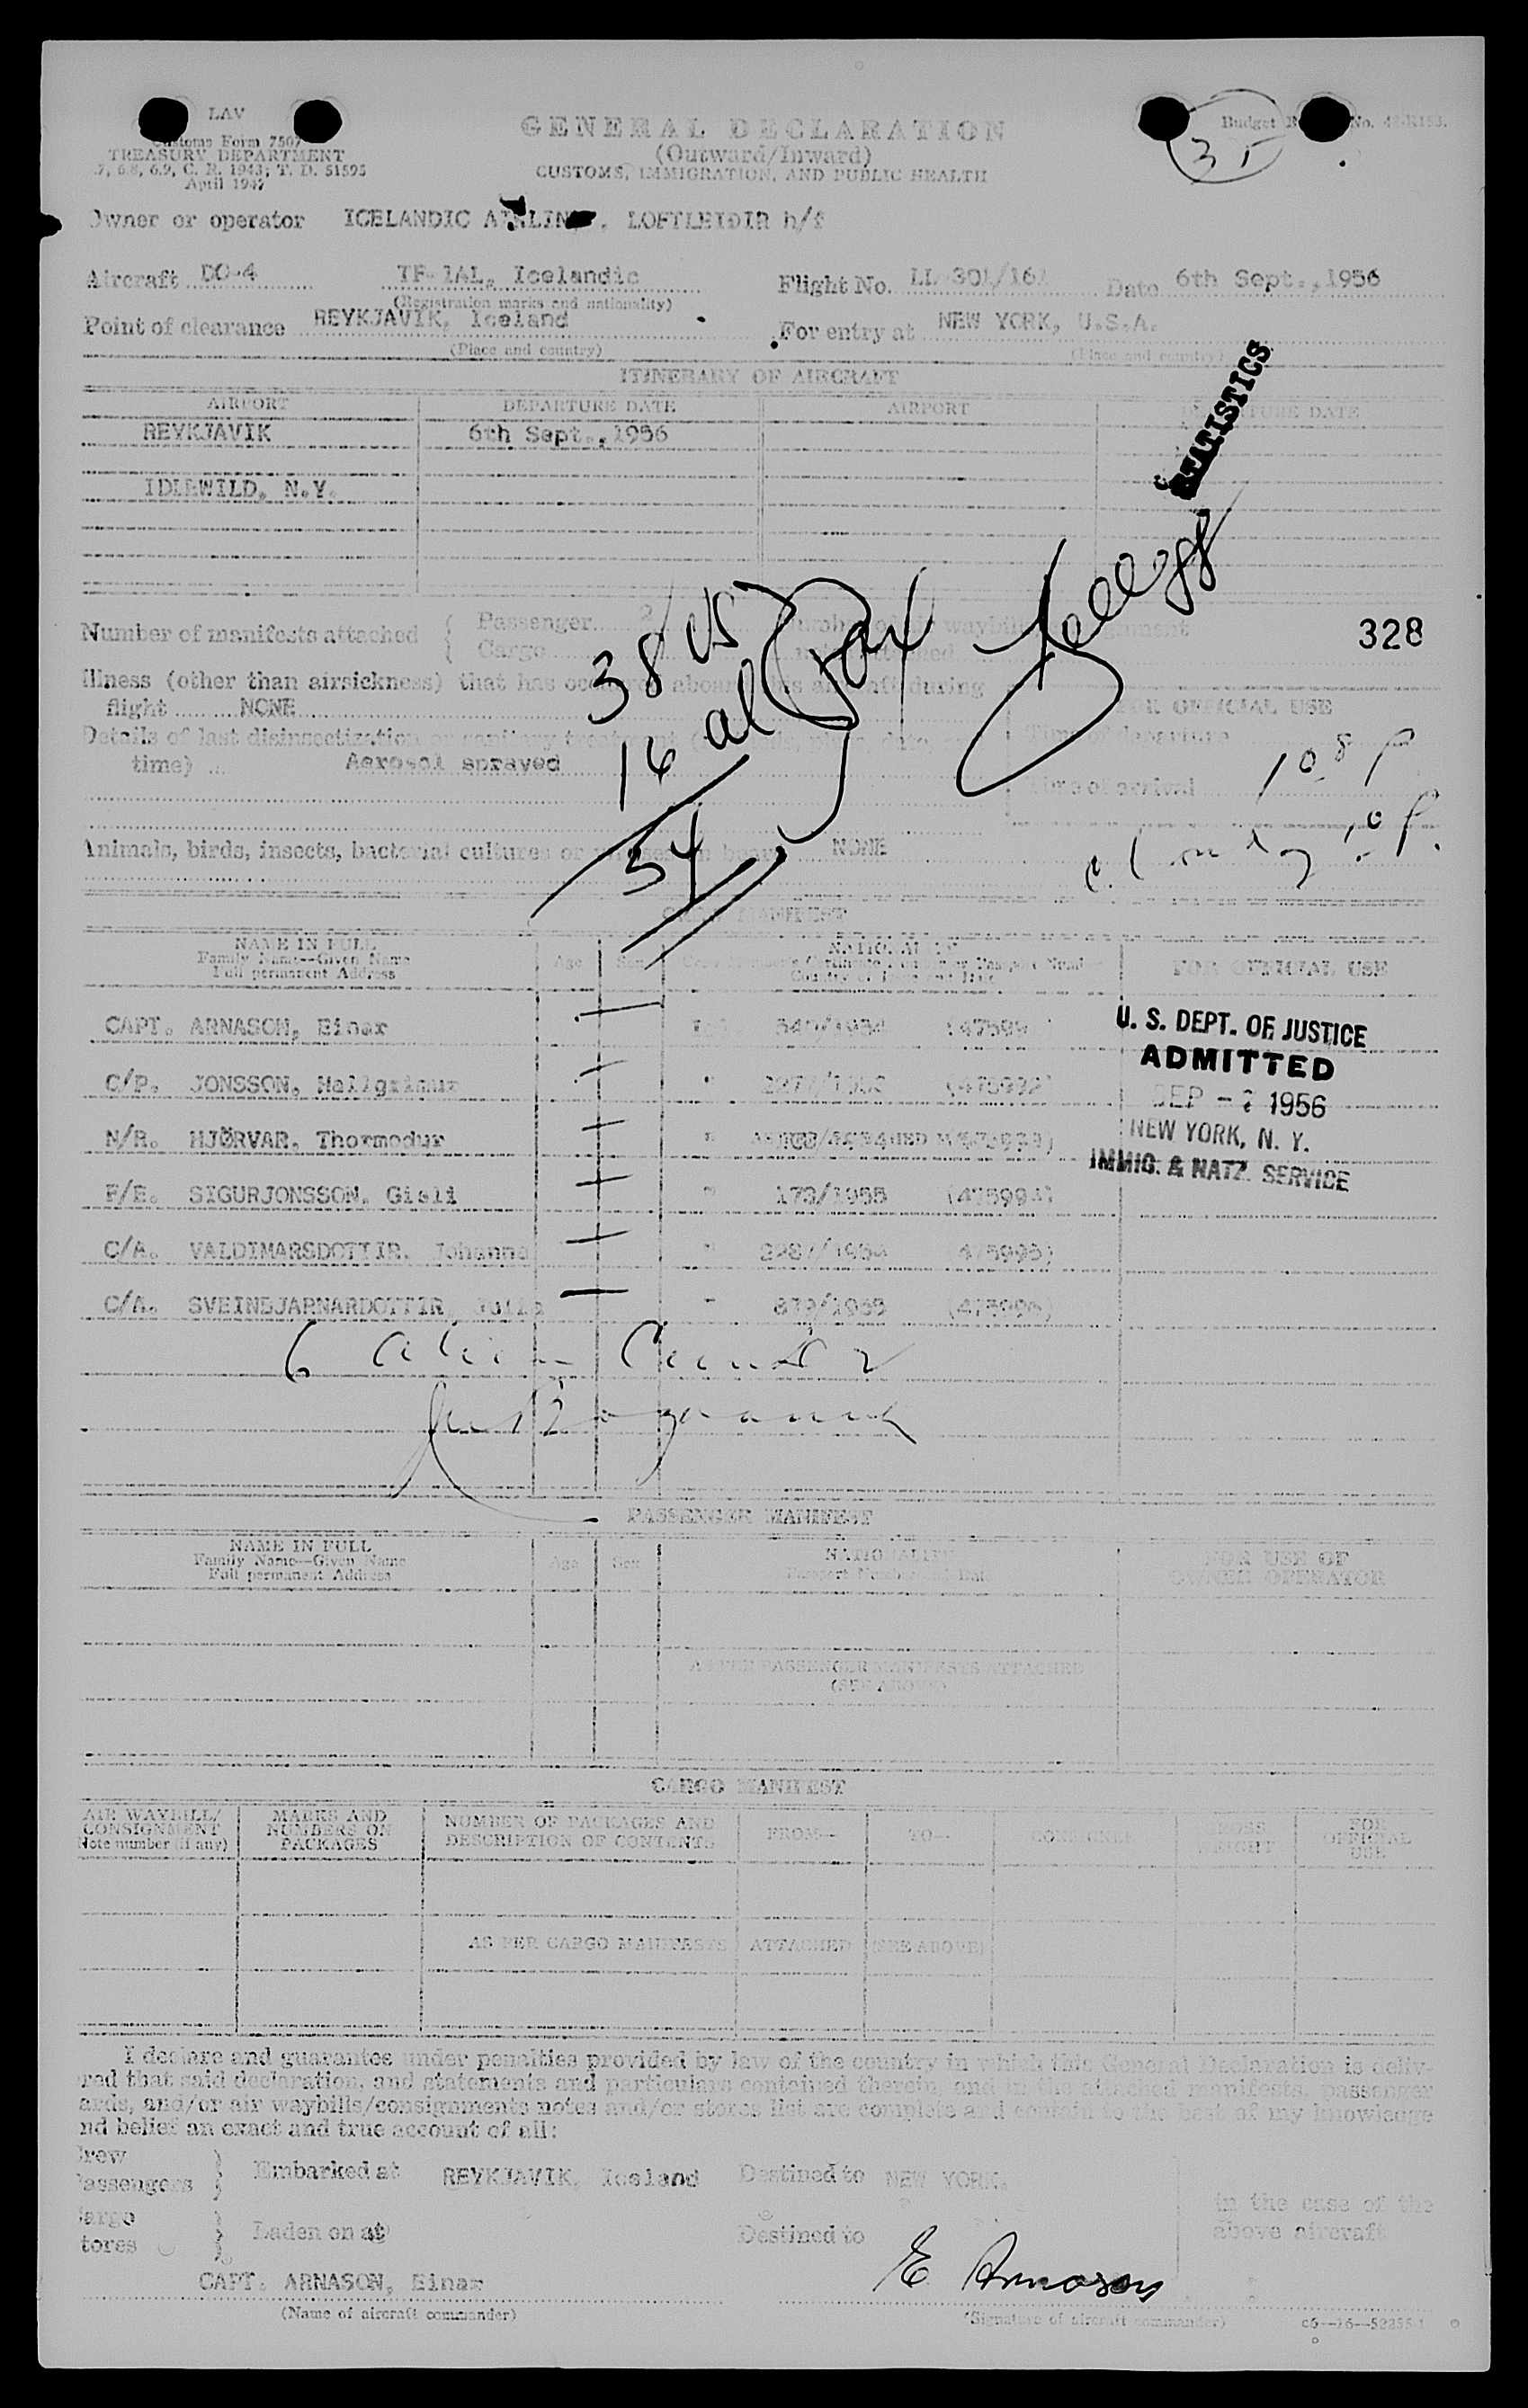 LAV
Customs Form 7507
TREASURY DEPARTMENT
.7, 6.8, 6.9, C. R. 1943; T. D. 51595
April 1947
GENERAL DECLARATION
(Outward/Inward)
CUSTOMS, IMMIGRATION, AND PUBLIC HEALTH
Budget No.
35
Owner or operator ICELANDIC AIRLINES, LOFTLEIDIR h/f
Aircraft DC-4 Icelandic Flight No. LL 301/161 Date 6th Sept., 1956
(Registration marks and nationality)
Point of clearance REYKJAVIK, Iceland For entry at NEW YORK, U.S.A.
(Place and country) (Place and country)
STATISTICS
ITINERARY OF AIRCRAFT
AIRPORT DEPARTURE DATE AIRPORT DEPARTURE DATE
REYKJAVIK 6th Sept., 1956
IDLEWILD, N.Y.
Number of manifests attached { Passenger 2
Cargo
38 cs
16 al
54
Pax
328
Illness (other than airsickness) that has occurred aboard this aircraft during
flight NONE
FOR OFFICIAL USE
Details of last disinsectization or sanitary treatment
Time of departure
time) Aerosol sprayed
Time of arrival
Animals, birds, insects, bacterial cultures or NONE
CREW MANIFEST
NAME IN FULL
Family Name--Given Name
Full permanent Address
Age Sex
FOR OFFICIAL USE
CAPT. ARNASON, Einar
C/P. JONSSON, Hallgrimur
N/R. HJÖRVAR, Thormodur
F/E. SIGURJONSSON, Gisli 173/1955
C/A. VALDIMARSDOTTIR, Johanna
C/A. SVEINBJARNARDOTTIR, Julia
U. S. DEPT. OF JUSTICE
ADMITTED
SEP - 1956
NEW YORK, N. Y.
IMMIG. & NATZ. SERVICE
6 alien
PASSENGER MANIFEST
NAME IN FULL
Family Name--Given Name
Full permanent Address
Age Sex
NATIONALITY
Passport Number and Date
FOR USE OF
OWNER OPERATOR
AS PER PASSENGER MANIFESTS ATTACHED
(SEE ABOVE)
CARGO MANIFEST
AIR WAYBILL/
CONSIGNMENT
Note number (if any)
MARKS AND
NUMBERS ON
PACKAGES
NUMBER OF PACKAGES AND
DESCRIPTION OF CONTENTS
FROM-- TO-- CONSIGNEE
GROSS
WEIGHT
FOR
OFFICIAL
USE
AS PER CARGO MANIFESTS ATTACHED (SEE ABOVE)
I declare and guarantee under penalties provided by law of the country in which this General Declaration is deliv-
red that said declaration, and statements and particulars contained therein, and in the attached manifests, passenger
ards, and/or air waybills/consignments notes and/or stores list are complete and contain to the best of my knowledge
nd belief an exact and true account of all:
rew
assengers } Embarked at REYKJAVIK, Iceland Destined to NEW YORK.
argo
tores } Laden on at Destined to
in the case of the
above aircraft
CAPT. ARNASON, Einar E Arnason
(Name of aircraft commander) (Signature of aircraft commander)